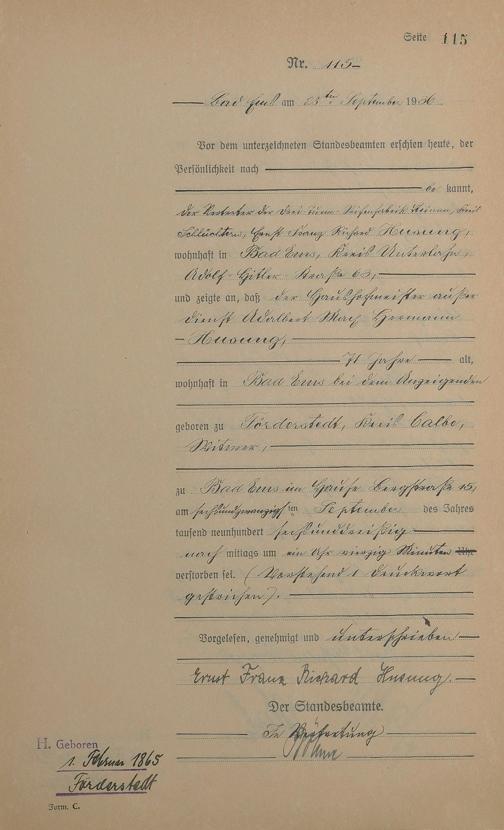 Seite 115
Nr. 115
Bad Ems am ten September 1936
Vor dem unterzeichneten Standesbeamten erschien heute, der
Persönlichkeit nach
be kannt,
der Vertreter der Drei Seifenfabrik Kreis
Schlüchtern, Ernst Franz Richard Husung,
wohnhaft in Bad Ems, Kreis Unterlahn,
Adolf-Hitler-Straße 63,
und zeigte an, daß der Haushofmeister außer
Dienst Adalbert Hermann
Husung,
71 Jahre alt,
wohnhaft in Bad Ems bei dem Anzeigenden
geboren zu Förderstedt, Kreis Calbe,
Witwer,
zu Bad Ems im Hause Bergstraße
am sechsundzwanzigsten ten September des Jahres
tausend neunhundert sechsunddreißig
nach mittags um ein Uhr vierzig Minuten Uhr
verstorben sei. (Vorstehend 1 Druckwort
gestrichen).
Vorgelesen, genehmigt und unterschrieben
Ernst Franz Richard Husung.
Der Standesbeamte.
In Vertretung
H. Geboren
1. Februar 1865
Förderstedt
Form. C.